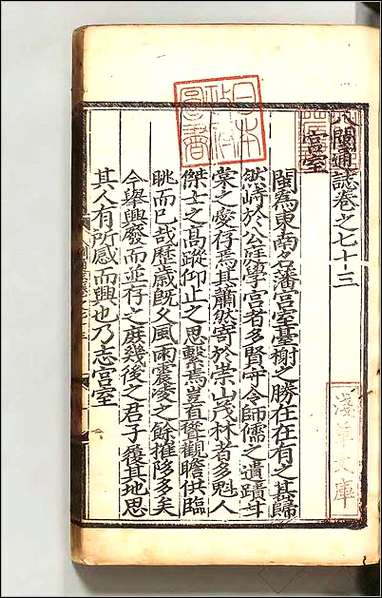 八閩通誌卷之七十三
宫室
閩爲東南名藩宫室臺榭之勝在在有之其歸
然峙於公庭學宫者多賢守令師儒之遺蹟甘
棠之愛存焉其蕭然寄於崇山茂林者多魁人
傑士之高蹤仰止之思繫焉豈直聳觀瞻供臨
眺而已哉歷歲旣久風雨震凌之餘摧陊多矣
今舉興廢而並存之庶幾後之君子履其地思
其人有所感而興也乃志宫室
日本
圖書
淺草文庫